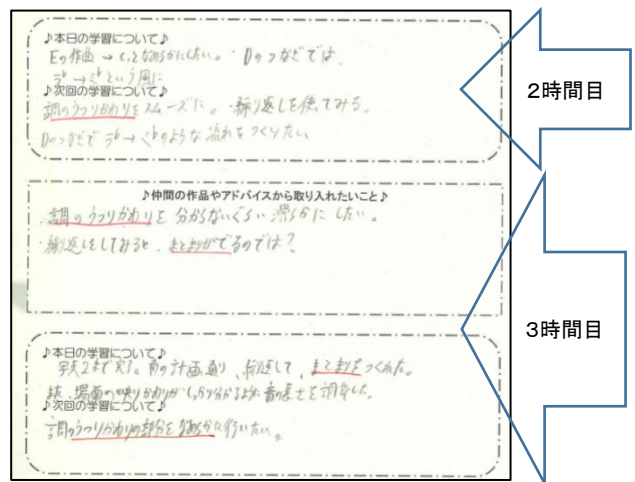 ♪本日の学習について♪
Eの作曲 → もっとなめらかにしたい。・Dのつなぎでは、
ラ♭→ミ♭という風に
♪次回の学習について♪
調のうつりかわりをスムーズに。・繰り返しを使ってみる。
Dのつなぎで ラ♭→ミ♭のような 流れをつくりたい
2時間目
♪仲間の作品やアドバイスから取り入れたいこと♪
・調のうつりかわりを 分からないぐらい 滑らかに したい。
・繰り返しをしてみると、まとまりがでるのでは?
♪本日の学習について♪
写真2まで完了。前の計画通り、繰り返して、まとまりをつくれた。
又、場面の移りかわりがしっかり分かるように音の長さを調節した。
♪次回の学習について♪
調のうつりかわりの部分をなめらかに行いたい。
3時間目